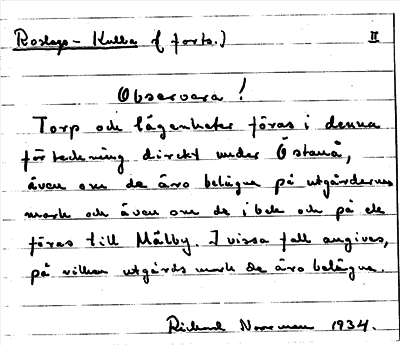 Roslags-Kulla (forts.) II
Observera!
Torp och lägenheter föras i denna
förteckning direkt under Östanå,
även om de äro belägna på utgårdernas
mark och även om de i bok och på
föras till Mälby. I vissa fall angives,
på vilken utgårds mark de äro belägna.
Rickard Norrman 1934.